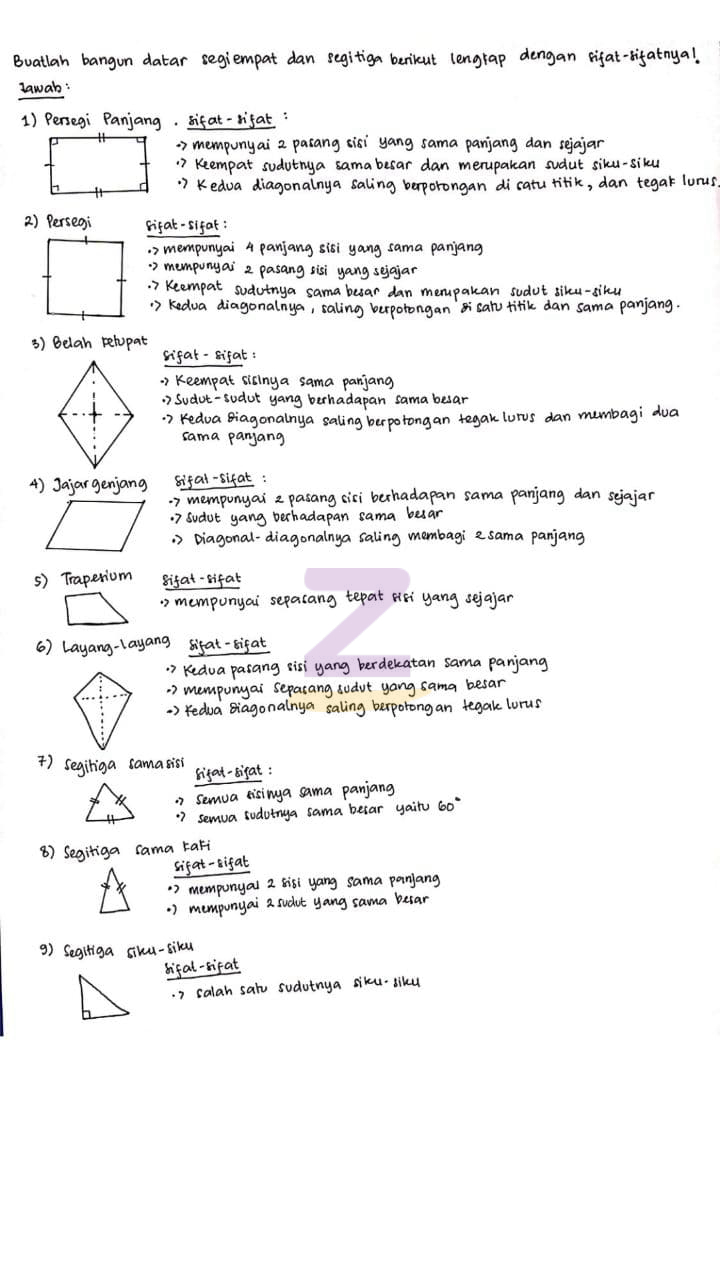 Buatlah bangun datar segiempat dan segitiga berikut lengkap dengan sifat-sifatnya!
Jawab:
1) Persegi Panjang . sifat-sifat :
-> mempunyai 2 pasang sisi yang sama panjang dan sejajar
-> Keempat sudutnya sama besar dan merupakan sudut siku-siku
-> Kedua diagonalnya saling berpotongan di satu titik, dan tegak lurus.
2) Persegi
sifat-sifat :
-> mempunyai 4 panjang sisi yang sama panjang
-> mempunyai 2 pasang sisi yang sejajar
-> Keempat sudutnya sama besar dan merupakan sudut siku-siku
-> Kedua diagonalnya, saling berpotongan di satu titik dan sama panjang.
3) Belah ketupat
sifat-sifat :
-> Keempat sisinya sama panjang
-> Sudut-sudut yang berhadapan sama besar
-> Kedua diagonalnya saling berpotongan tegak lurus dan membagi dua
sama panjang
4) Jajar genjang
sifat-sifat :
-> mempunyai 2 pasang sisi berhadapan sama panjang dan sejajar
-> sudut yang berhadapan sama besar
-> Diagonal-diagonalnya saling membagi 2 sama panjang
5) Trapesium
sifat-sifat
-> mempunyai sepasang tepat sisi yang sejajar
6) Layang-Layang
sifat-sifat
-> Kedua pasang sisi yang berdekatan sama panjang
-> mempunyai sepasang sudut yang sama besar
-> Kedua diagonalnya saling berpotongan tegak lurus
7) Segitiga sama sisi
sifat-sifat :
-> semua sisinya sama panjang
-> semua sudutnya sama besar yaitu 60°
8) Segitiga sama kaki
sifat-sifat
-> mempunyai 2 sisi yang sama panjang
-> mempunyai 2 sudut yang sama besar
9) Segitiga siku-siku
sifat-sifat
-> salah satu sudutnya siku-siku
Z